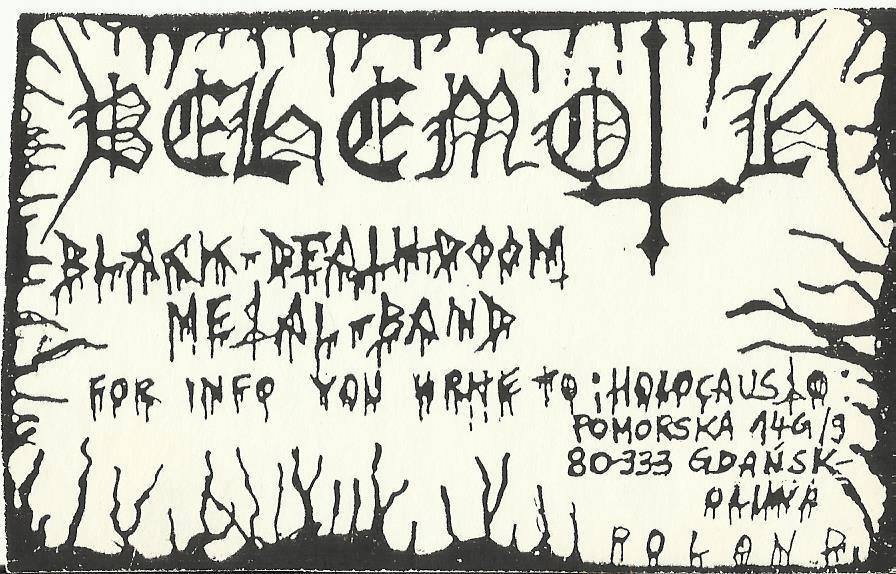 BEHEMOTH
BLACK-DEATH-DOOM
METAL-BAND
FOR INFO YOU WRITE TO: HOLOCAUSTO
POMORSKA 14G/9
80-333 GDAŃSK-
OLIWA
POLAND.